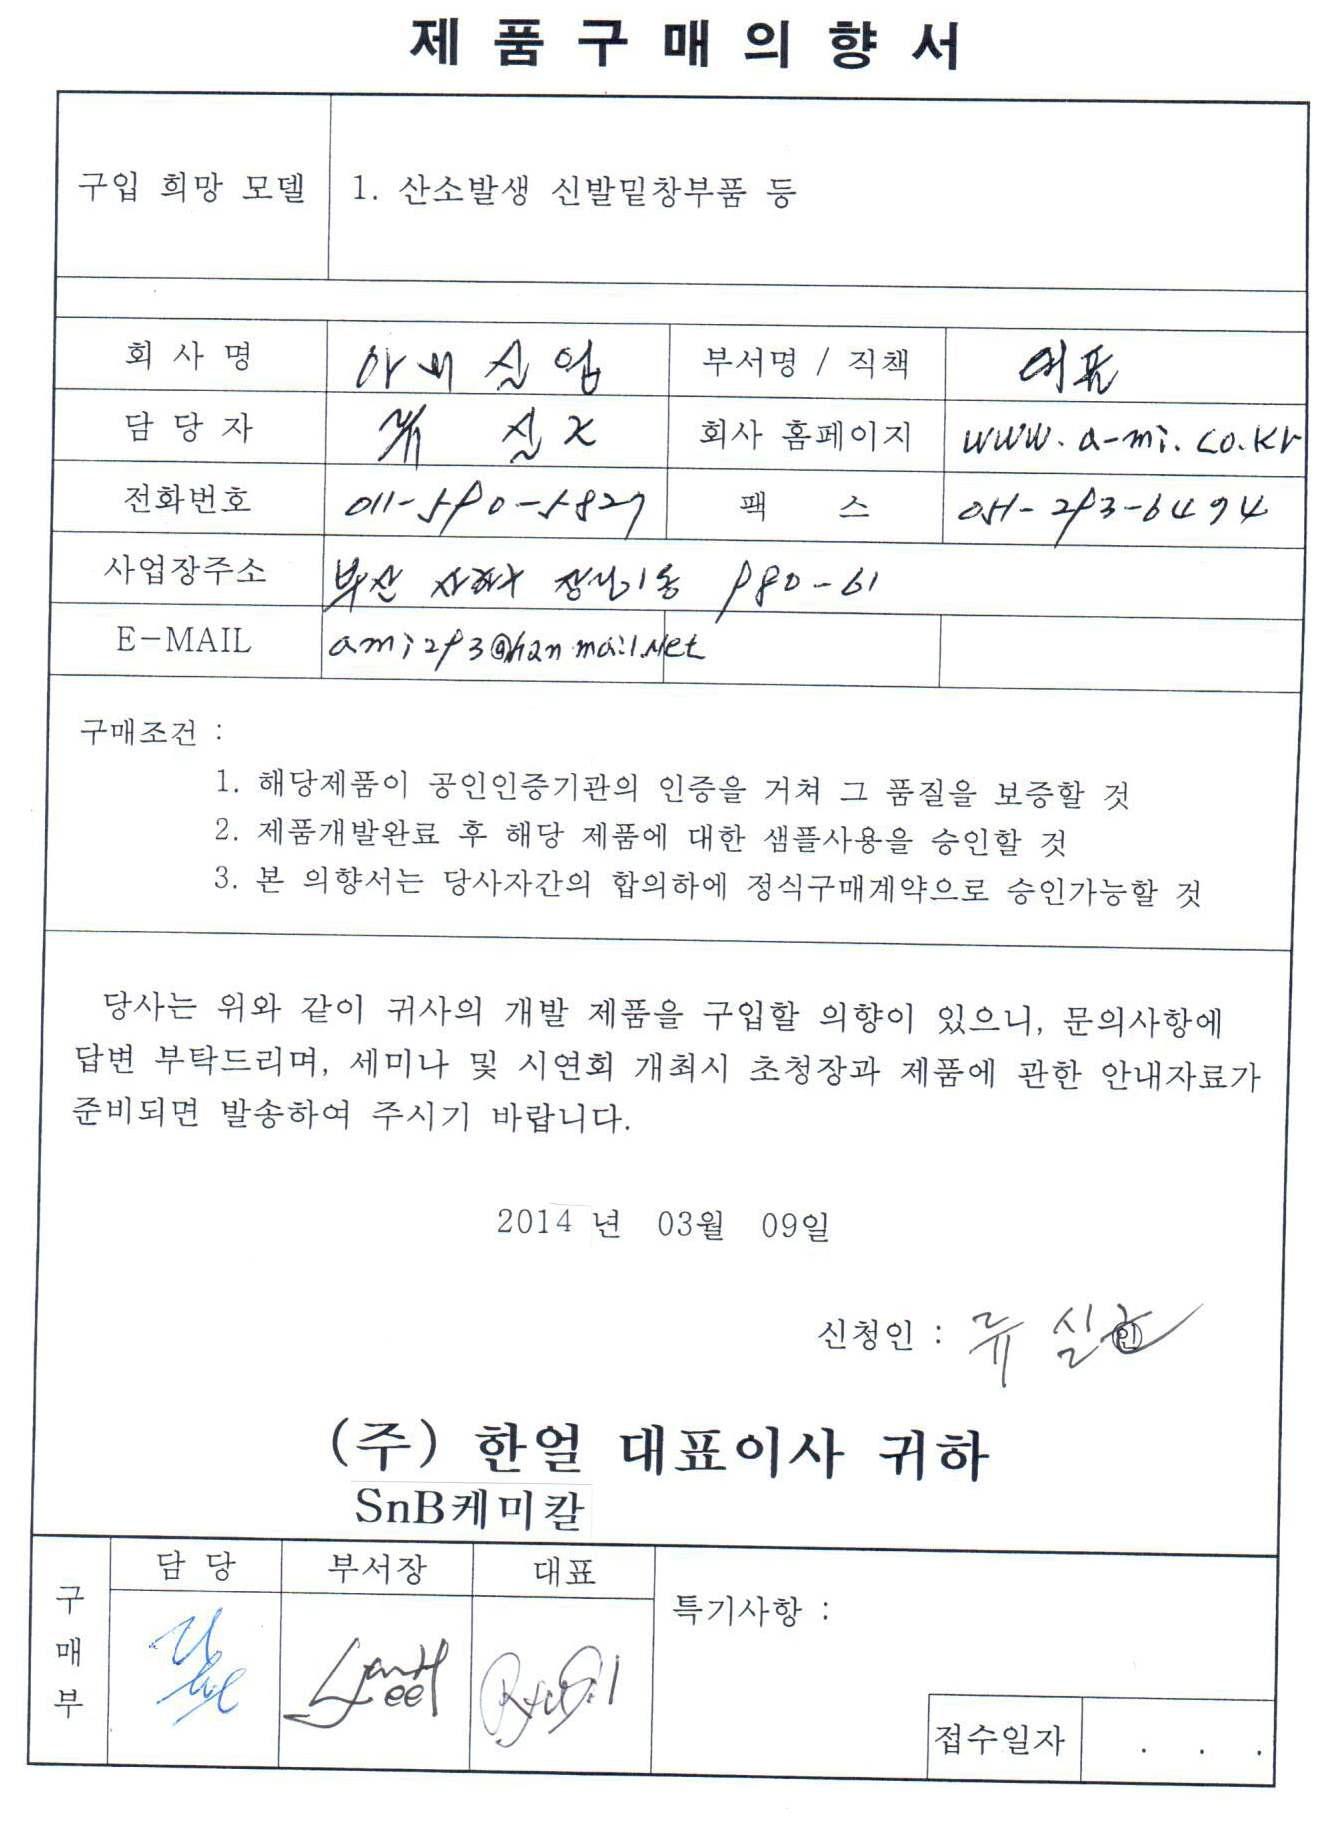 제 품 구 매 의 향 서
구입 희망 모델 1. 산소발생 신발밑창부품 등
회 사 명 아미 실업 부서명 / 직책 대표
담 당 자 류 실 회사 홈페이지 www.a-mi.co.kr
전화번호 011-590-5827 팩 스 051-293-6494
사업장주소 부산 사하구 장림1동 980-61
E-MAIL ami293@hanmail.net
구매조건 :
1. 해당제품이 공인인증기관의 인증을 거쳐 그 품질을 보증할 것
2. 제품개발완료 후 해당 제품에 대한 샘플사용을 승인할 것
3. 본 의향서는 당사자간의 합의하에 정식구매계약으로 승인가능할 것
당사는 위와 같이 귀사의 개발 제품을 구입할 의향이 있으니, 문의사항에
답변 부탁드리며, 세미나 및 시연회 개최시 초청장과 제품에 관한 안내자료가
준비되면 발송하여 주시기 바랍니다.
2014 년 03월 09일
신청인 : 류 실 인
(주) 한얼 대표이사 귀하
SnB케미칼
구매부 담 당 부서장 대표
특기사항 :
접수일자 . . .